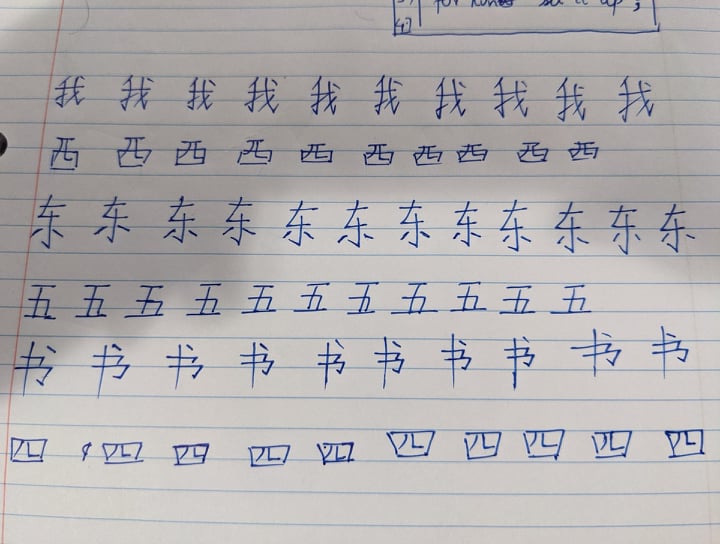 for
up ;
我 我 我 我 我 我 我 我 我 我
西 西 西 西 西 西 西 西 西 西
东 东 东 东 东 东 东 东 东 东 东 东
五 五 五 五 五 五 五 五 五 五 五
书 书 书 书 书 书 书 书 书 书
四 四 四 四 四 四 四 四 四 四